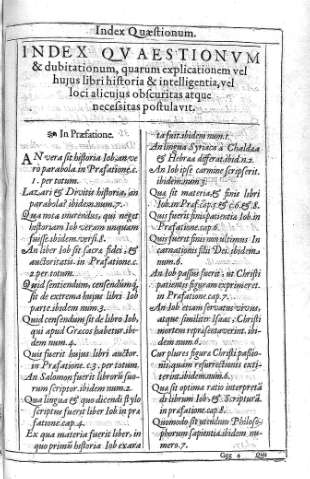 Index Quæstionum.
INDEX QVAESTIONVM
& dubitationum, quarum explicationem vel
hujus libri historia & intelligentia, vel
loci alicujus obscuritas atque
necessitas postulavit.
In Præfatione.
AN vera sit historia Iob, an ve
rò parabola in Præfatione, c.
1. per totum.
Lazari & Divitis historia, an
parabola? ibidem. num. 7.
Qua nota inurendus, qui neget
historiam Iob veram unquam
fuisse. ibidem. versi. 8.
An liber Iob sit sacræ fidei, &
auctoritatis in Præfatione. c.
2 per totum.
Quid sentiendum, censendumq́;
sit de extrema hujus libri Iob
parte. ibidem num. 3.
Quid censendum sit de libro Iob,
qui apud Græcos habetur. ibi-
dem num. 4.
Quis fuerit hujus libri auctor.
in Præfatione. c. 3. per totum.
An Salomon fuerit librorū suo-
rum scriptor. ibidem num. 2.
Qua lingua & quo dicendi stylo
scriptus fuerit liber Iob in præ
fatione cap. 4.
Ex qua materia fuerit liber, in
quo primū historia Iob exara
ta fuit. ibidem num. 1.
An lingua Syriaca à Chaldæa
& Hebræa differat. ibid. n. 2.
An Iob ipse carmine scripserit.
ibidem. num. 3.
Quæ sit materia & finis libri
Iob. in Præf. cap. 5 & c. 6 & 8.
Quis fuerit finis patientiæ Iob in
Præfatione cap. 6.
Quis fuerit finis non ultimus In
carnationis filii Dei. ibidem.
num. 6.
An Iob passus fuerit, ut Christi
patientis figuram exprimeret.
in Præfatione cap. 7.
An Iob etiam servatus vivus,
atque similiter Isaac, Christi
mortem repræsentaverint. ibi-
dem num. 6.
Cur plures figuræ Christi passio-
nis, quàm resurrectionis exti-
terint. ibidem num. 6.
Quæ sit optima ratio interpretā
di librum Iob, & Scripturā.
in præfatione cap. 8.
Quomodo sit utendum Philoso-
phorum sapientia. ibidem nu-
mero. 7.